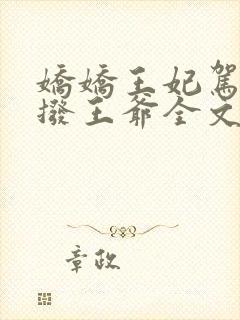 嬌嬌王妃駕
撥王爺全文
章政